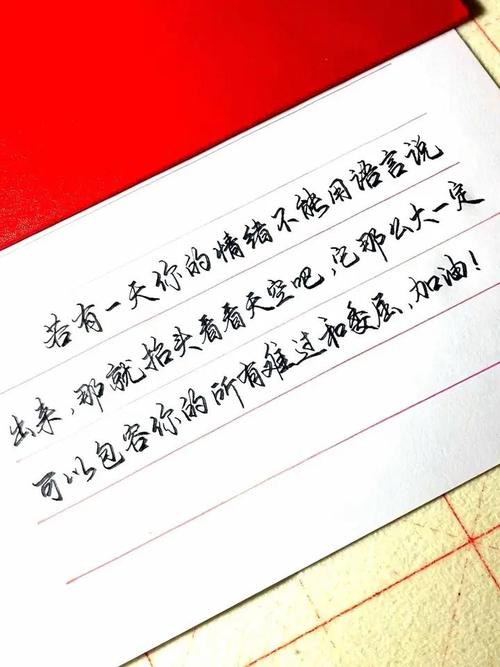 若有一天你的情绪不能用语言说
出来,那就抬头看看天空吧,它那么大一定
可以包容你的所有难过和委屈,加油!